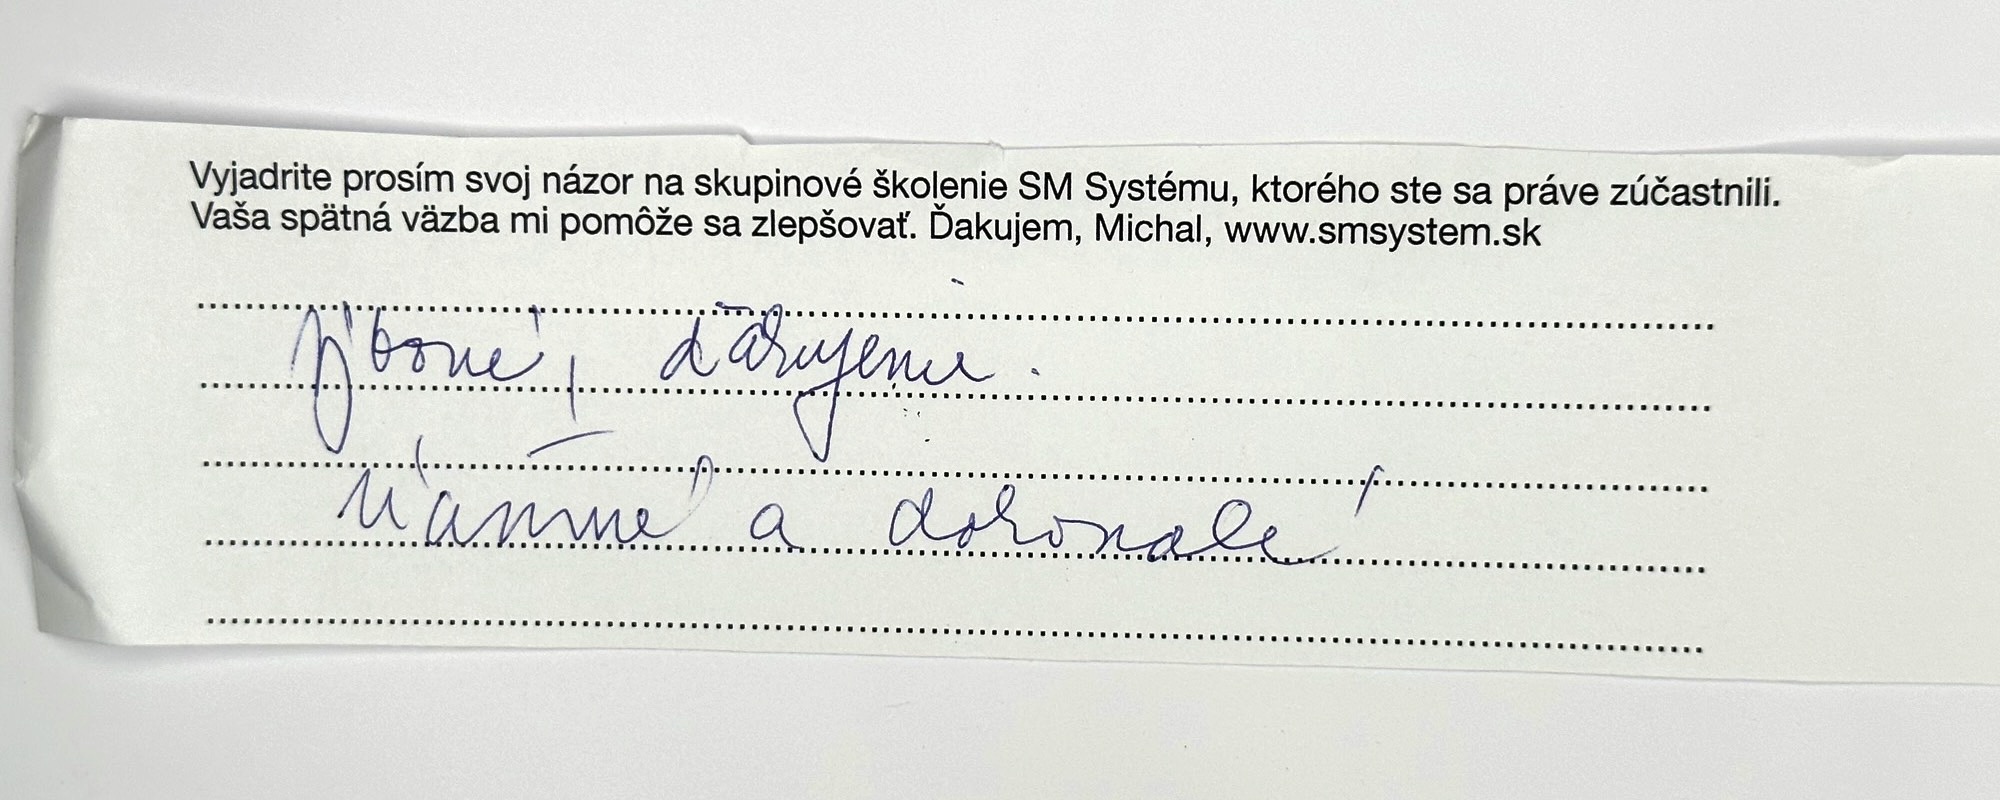 Vyjadrite prosím svoj názor na skupinové školenie SM Systému, ktorého ste sa práve zúčastnili.
Vaša spätná väzba mi pomôže sa zlepšovať. Ďakujem, Michal, www.smsystem.sk
Výborné, ďakujeme.
a dokonalé